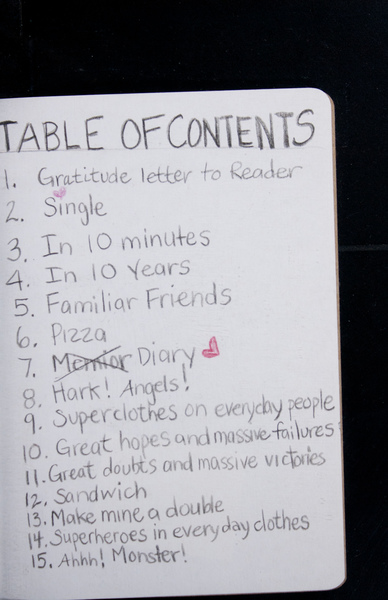 TABLE OF CONTENTS
1. Gratitude letter to Reader
2. Single
3. In 10 minutes
4. In 10 Years
5. Familiar Friends
6. Pizza
7. Memior Diary
8. Hark! Angels!
9. Superclothes on everyday people
10. Great hopes and massive failures
11. Great doubts and massive victories
12. Sandwich
13. Make mine a double
14. Superheroes in everyday clothes
15. Ahhh! Monster!